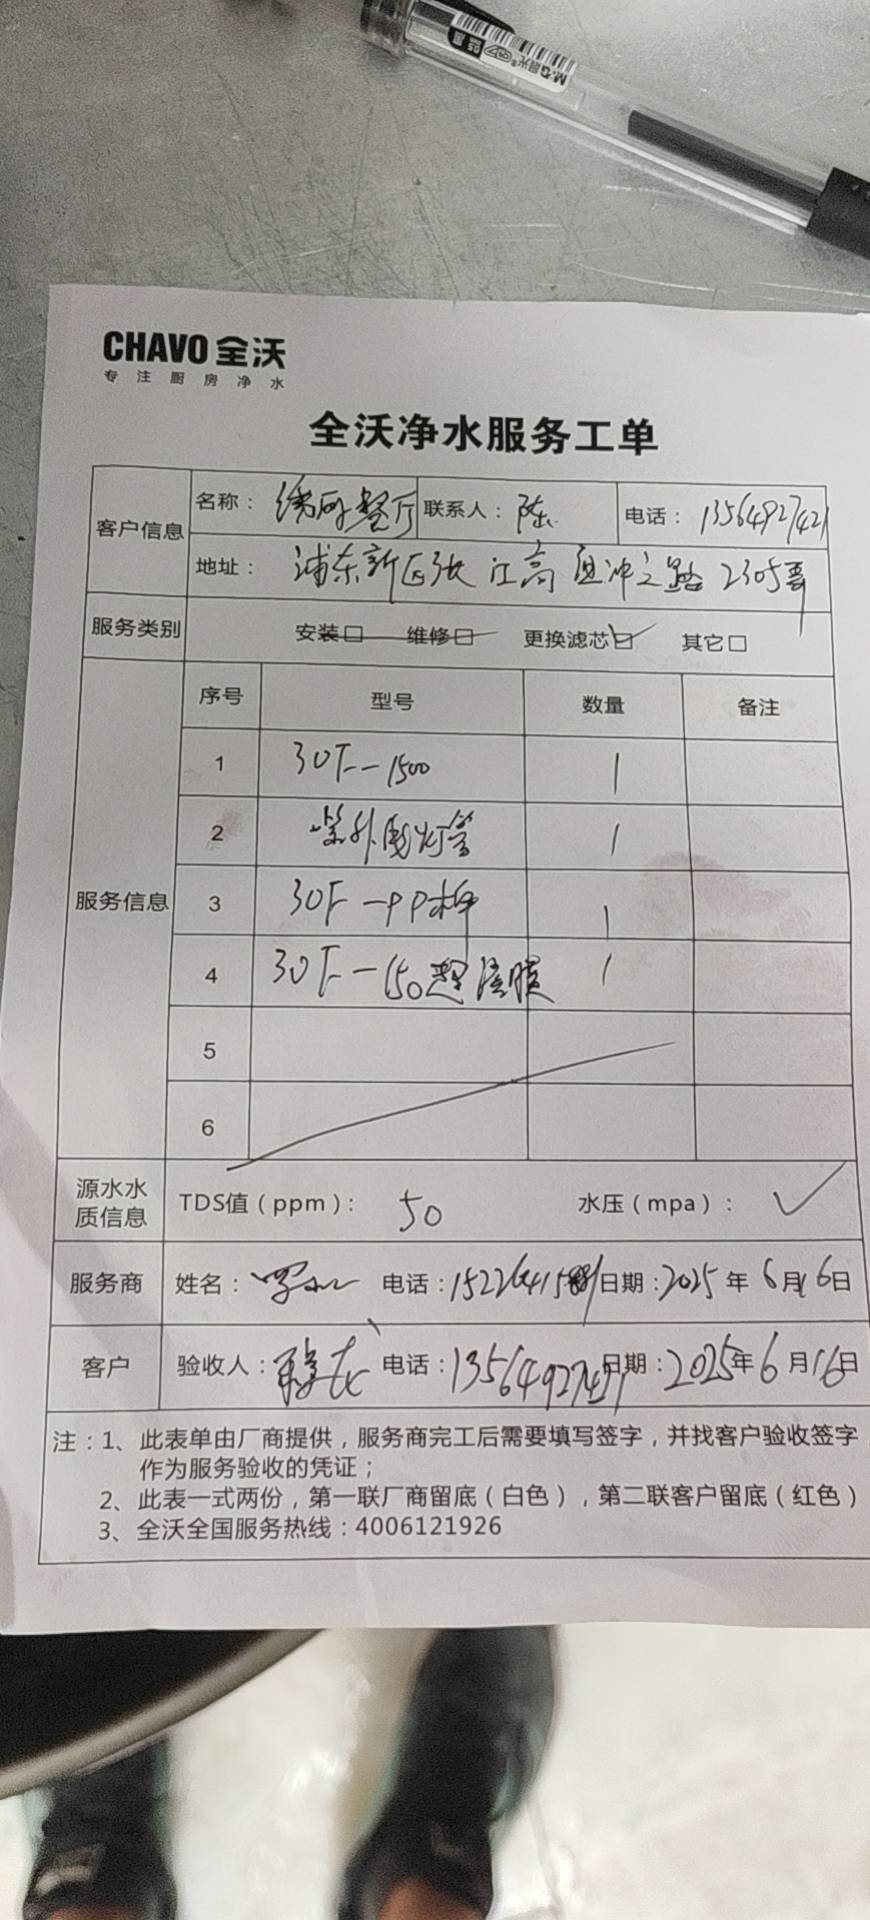 M&G晨光
CHAVO 全沃
专注厨房净水
全沃净水服务工单
客户信息
名称： 餐厅 联系人： 陈 电话： 13564927421
地址： 浦东新区张江高 祖冲之路2305号
服务类别 安装□ 维修□ 更换滤芯☑ 其它□
服务信息
序号 型号 数量 备注
1 30F-1500 1
2 紫外线灯管 1
3 30F-PP棉 1
4 30F-150超滤膜 1
5
6
源水水质信息 TDS值（ppm）： 50 水压（mpa）： ✓
服务商 姓名： 电话： 日期：2025年6月16日
客户 验收人： 电话：13564927421 日期：2025年6月16日
注：1、此表单由厂商提供，服务商完工后需要填写签字，并找客户验收签字
作为服务验收的凭证；
2、此表一式两份，第一联厂商留底（白色），第二联客户留底（红色）
3、全沃全国服务热线：4006121926